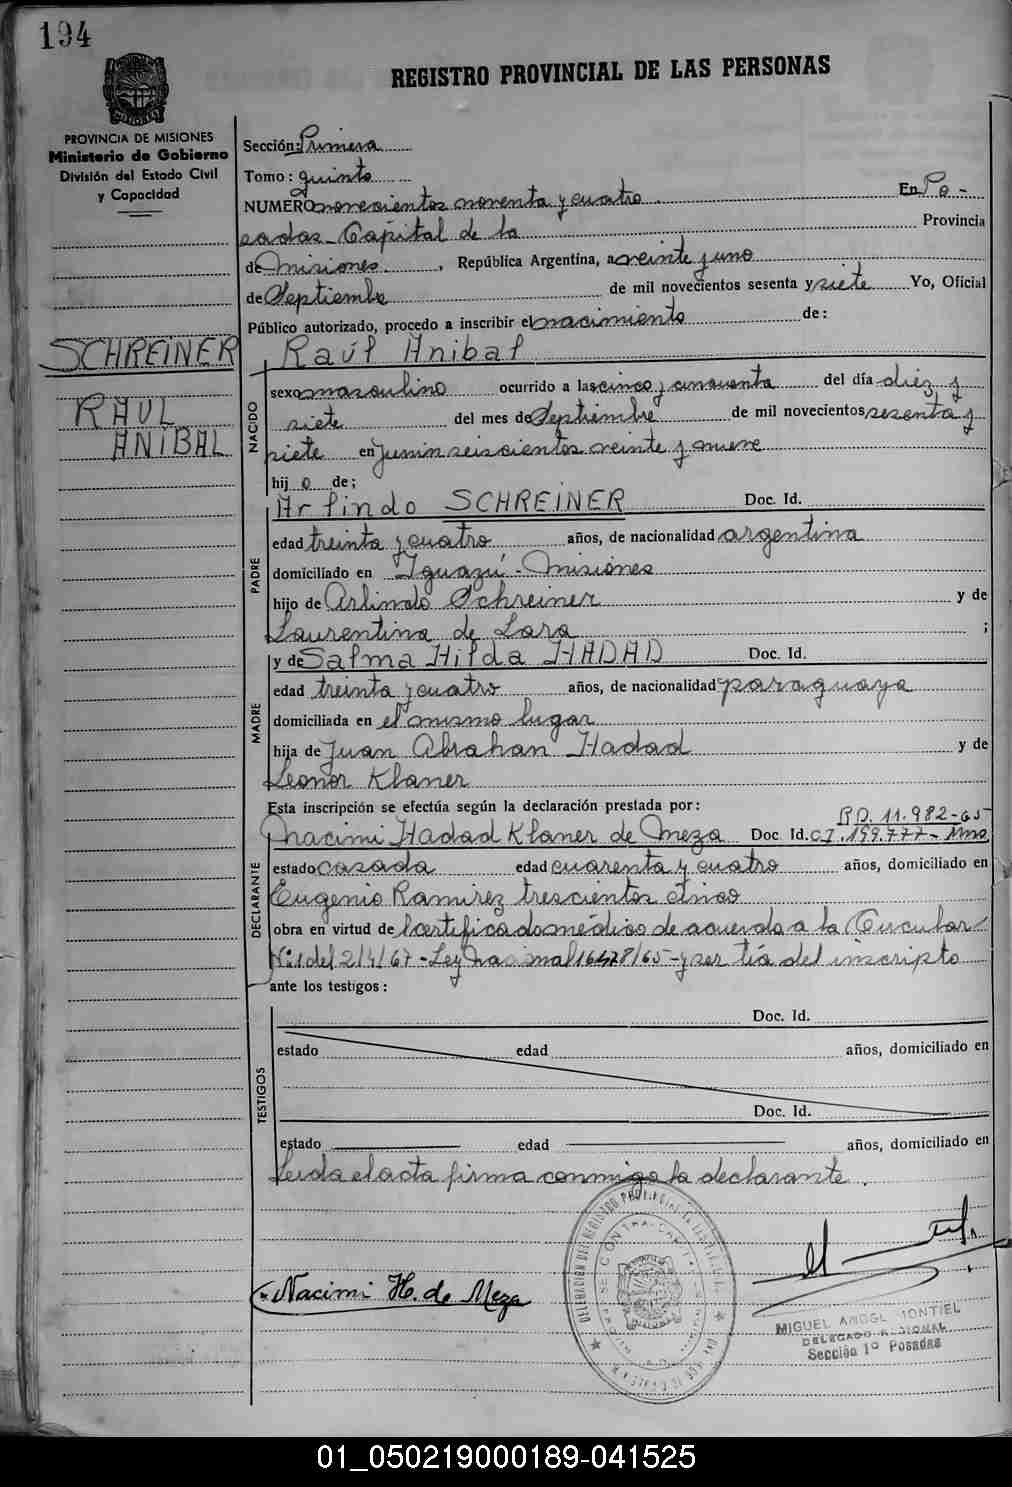 194
REGISTRO PROVINCIAL DE LAS PERSONAS
PROVINCIA DE MISIONES
Ministerio de Gobierno
División del Estado Civil
y Capacidad
SCHREINER
RAUL
ANIBAL
Sección: Primera
Tomo: quinto
NUMERO novecientos noventa y cuatro En Po-
sadas Capital de la Provincia
de Misiones, República Argentina, a veinte y uno
de Septiembre de mil novecientos sesenta y siete Yo, Oficial
Público autorizado, procedo a inscribir el nacimiento de:
Raúl Anibal
NACIDO
sexo masculino ocurrido a las cinco y cincuenta del día diez y
siete del mes de Septiembre de mil novecientos sesenta y
siete en Junin seiscientos veinte y nueve
hijo de;
Arlindo SCHREINER Doc. Id.
PADRE
edad treinta y cuatro años, de nacionalidad argentina
domiciliado en Iguazú - Misiones
hijo de Arlindo Schreiner y de
Laurentina de Lara ;
y de Salma Hilda HADAD Doc. Id.
MADRE
edad treinta y cuatro años, de nacionalidad paraguaya
domiciliada en el mismo lugar
hija de Juan Abrahan Hadad y de
Leonor Klaner
Esta inscripción se efectúa según la declaración prestada por: RD. 11.982-65
Nacimi Hadad Klaner de Meza Doc. Id. C.I. 199.777- Mnes
DECLARANTE
estado casada edad cuarenta y cuatro años, domiciliado en
Eugenio Ramirez trescientos cinco
obra en virtud de certificado médico de acuerdo a la Circular
Nº1 del 2/4/67 - Ley Nacional 16478/65 - y ser tía del inscripto
ante los testigos:
Doc. Id.
TESTIGOS
estado edad años, domiciliado en
Doc. Id.
estado edad años, domiciliado en
Leida el acta firma conmigo la declarante.
Nacimi H. de Meza
MIGUEL ANGEL MONTIEL
DELEGADO REGIONAL
Sección 1º Posadas
01_050219000189-041525